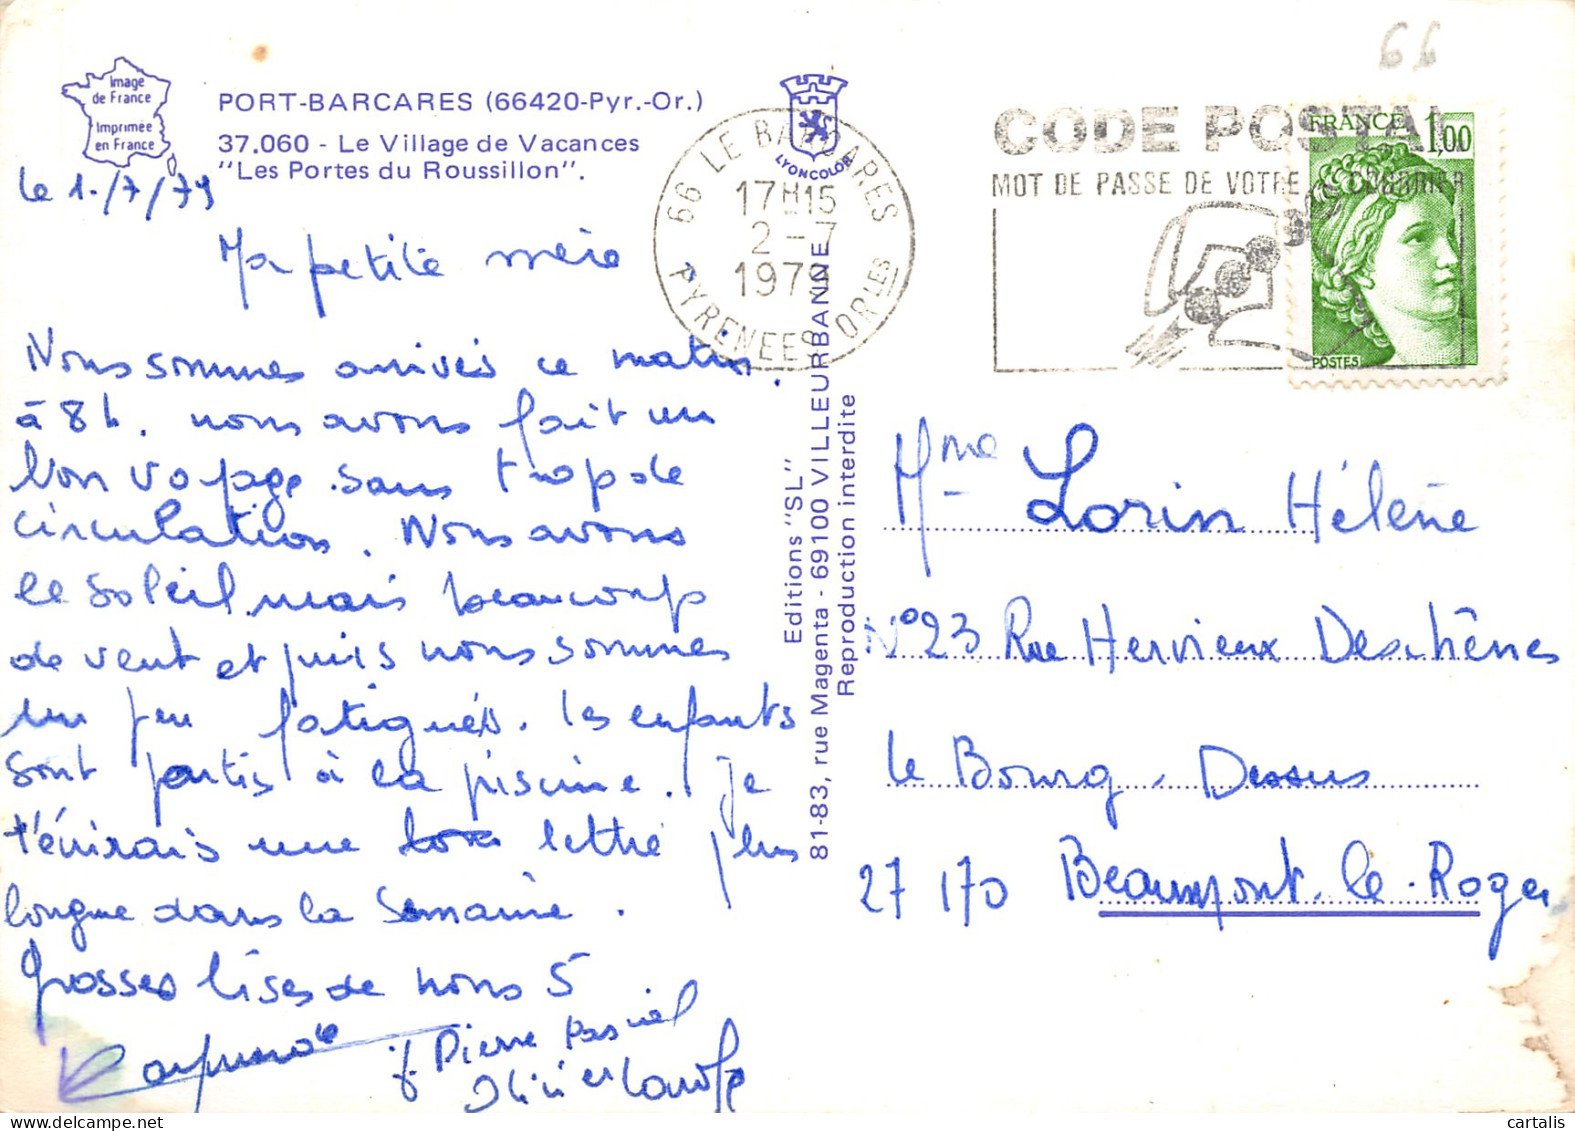 66
Image
de France
Imprimée
en France
PORT-BARCARES (66420-Pyr.-Or.)
37.060 - Le Village de Vacances
"Les Portes du Roussillon".
LYONCOLOR
66 LE BARCARES
17H15
2-7
1979
PYRENEES ORLES
CODE POSTAL
MOT DE PASSE DE VOTRE COURRIER
FRANCE 1,00
POSTES
le 1./7/79
Ma petite mère
Nous sommes arrivés ce matin.
à 8h. nous avons fait un
bon voyage sans trop de
circulation. Nous avons
le soleil mais beaucoup
de vent et puis nous sommes
un peu fatigués. les enfants
sont partis à la piscine. je
t'écrirais une lettre plus
longue dans la semaine.
Grosses bises de nous 5
Raymonde
J. Pierre Pascual
Olivier
Editions "SL"
81-83, rue Magenta - 69100 VILLEURBANNE
Reproduction interdite
Mme Lorin Hélène
N°23 Rue Hervieux Deschênes
le Bourg. Dessus
27170 Beaumont-le-Roger
cartalis